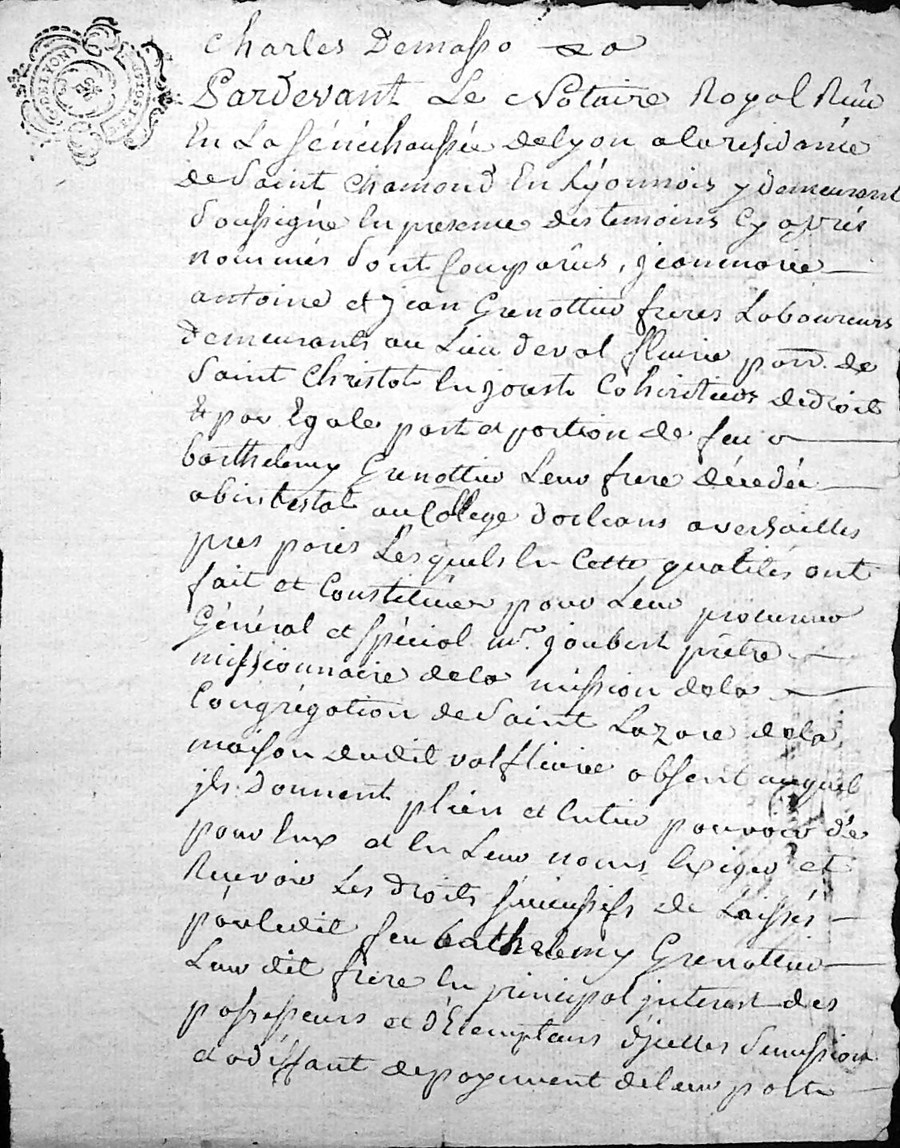 Charles Demasso
Pardevant Le Notaire Royal Reçu
En La Sénéchaussée de lyon a la residance
de Saint Chamond En Lyonnois y demeurant
Soussigné En presence des temoins Cy aprés
nommés Sont Comparus, jean marie
antoine et jean Grenottier freres Laboureurs
demeurants au Lieu de val fleurie parr. de
Saint Christot En jarest Coheritiers de droit
& par Egale part et portion de feu
barthelemy Grenottier Leur frere décedé
abintestat au College d'orleans a versailles
pres paris Lesquels En Cette qualités ont
fait et Constitués pour Leur procureur
Général et Spécial mr. joubert prêtre
missionnaire de la mission de la
Congrégation de Saint Lazare de la
maison dudit val fleurie absent auquel
jls Donnent plein et Entier pouvoir de
pour Eux et En Leur noms Exiger et
Recevoir Les droits Successifs de Laissés
par ledit feu barthelemy Grenottier
Leur dit frere En principal jnterest des
possesseurs et détempteurs d'jcelles Succession
et a deffaut de payement de leur part